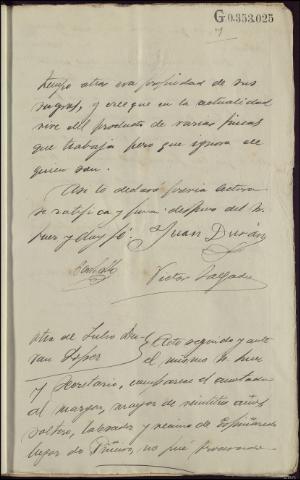 G 0.353.025
tiempo atras era propiedad de sus
suegros, y cree que en la actualidad
vive del producto de varias fincas
que trabaja pero que ignora de
quien son.
Asi lo declaró previa lectura
se ratifica y firma despues del Sr.
Juez y doy fé. Juan Durán
Victor Salgado
otra de Julio Acto seguido y ante
Lopez el mismo Sr. Juez
y Secretario, comparece el anotado
al margen, mayor de veintitres años,
soltero, labrador y vecino de
lugar de Piñeiro, no fué procesado